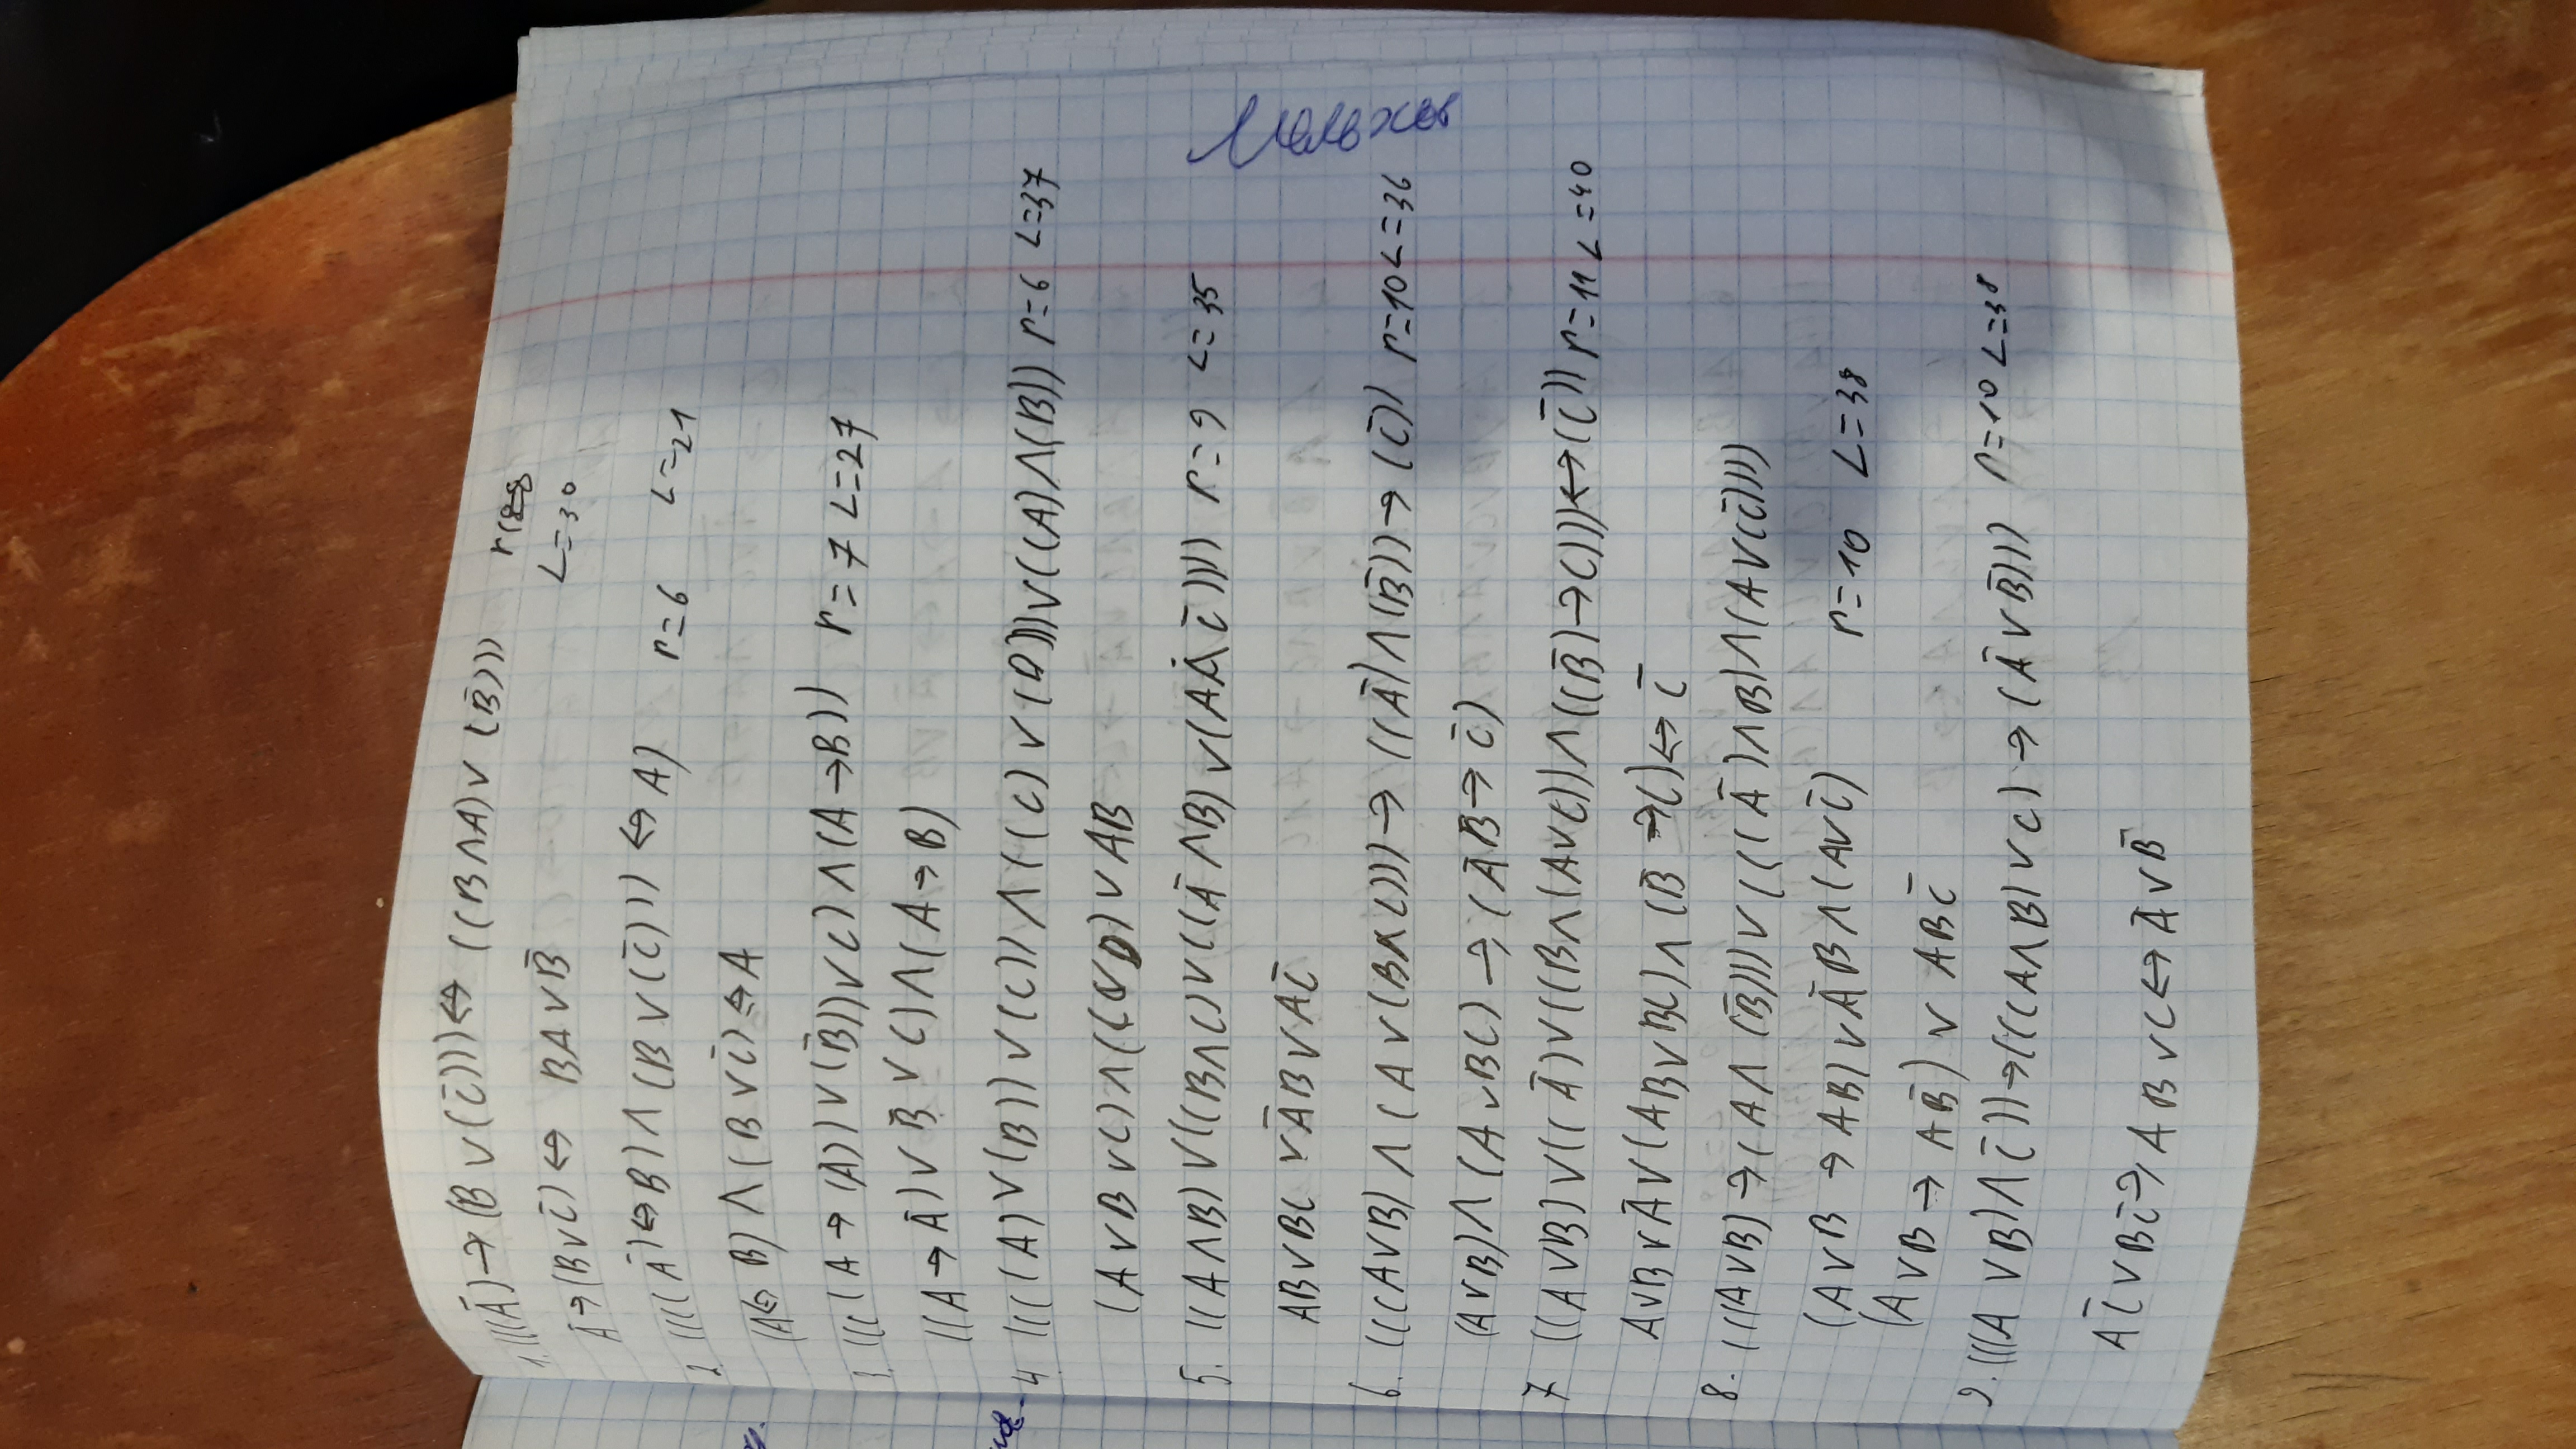 1. (((Ā)→(B∨(C̄)))⇔((B∧A)∨(B̄)))
L=30
Ā→(B∨C̄)⇔ BA∨B̄
2. ((((Ā)⇔B)∧(B∨(C̄)))⇔A) r=6 L=21
(A⇔B)∧(B∨C̄)⇔A
3. ((((A→(Ā))∨(B̄))∨C)∧(A→B)) r=7 L=27
((A→Ā)∨B̄∨C)∧(A→B)
4. ((((A)∨(B))∨(C))∧((C)∨(D)))∨((A)∧(B)) r=6 L=37
(A∨B∨C)∧((C∨D)∨AB
5. ((A∧B)∨((B∧C)∨((Ā∧B)∨(A∧C̄)))) r=9 L=35
AB∨BC∨ĀB∨AC̄
6. (((A∨B)∧(A∨(B∧C)))→((Ā)∧(B̄))→(C̄)) r=10 L=36
(A∨B)∧(A∨BC)→(ĀB̄→C̄)
7 ((A∨B)∨((Ā)∨((B∧(A∨C))∧((B̄)→C)))↔(C̄)) r=11 L=40
A∨B∨Ā∨(AB∨BC)∧(B̄→C)↔C̄
8. (((A∨B)→(A∧(B̄)))∨(((Ā)∧B)∧(A∨(C̄))))
(A∨B→AB)∨ĀB∧(A∨C̄) r=10 L=38
(A∨B→AB̄)∨ABC̄
9. (((A∨B)∧C̄))→(((A∧B)∨C)→(Ā∨B̄))) r=10 L=38
AC̄∨BC̄→AB∨C↔Ā∨B̄